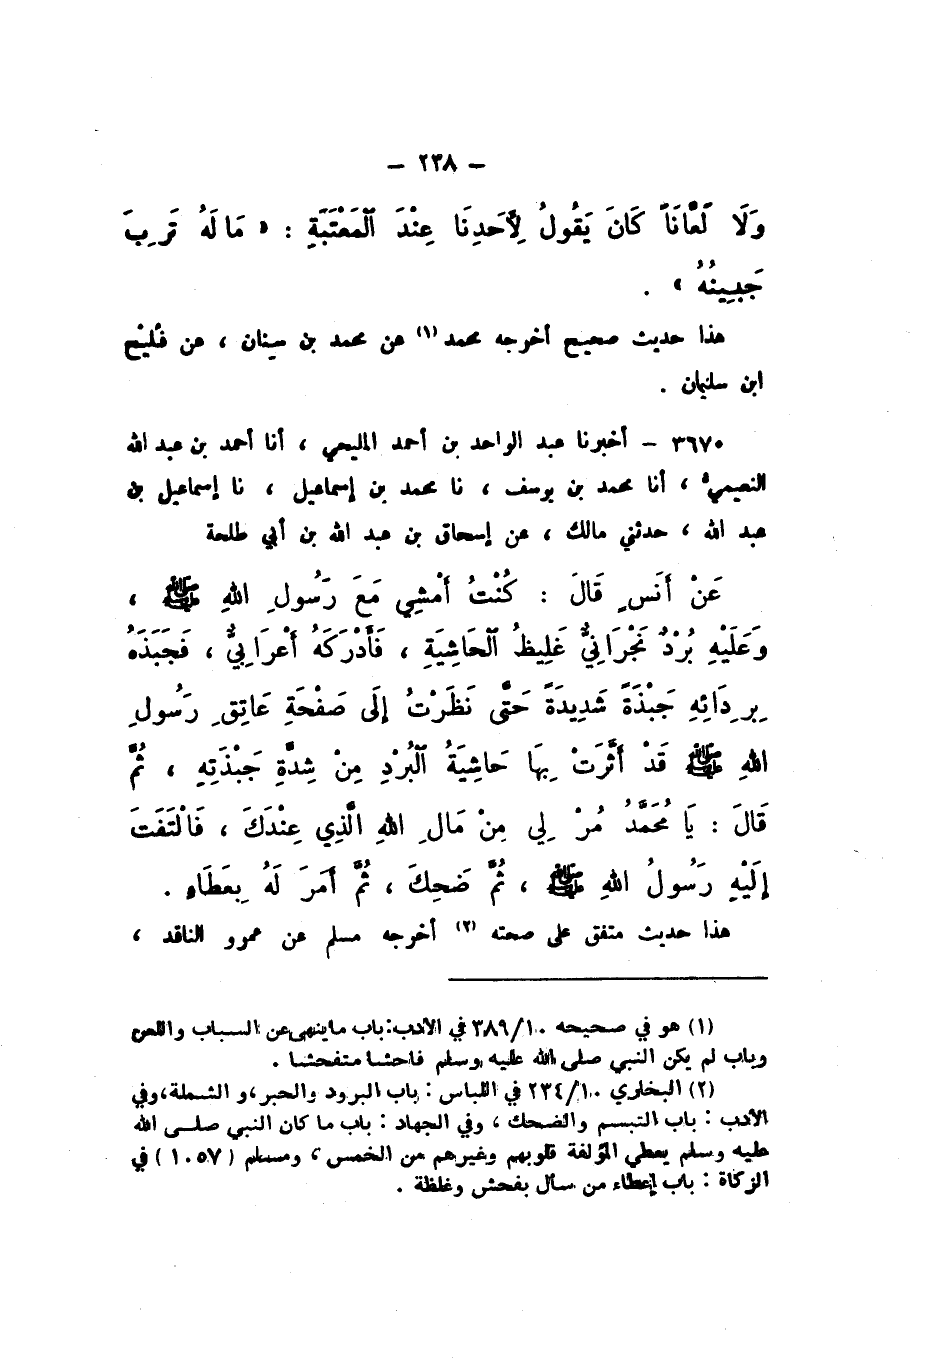 — ٢٣٨ —
وَلَا لَعَّانَاً كَانَ يَقُولُ لِأَحَدِنَا عِنْدَ ٱلْمَعْتَبَةِ : « مَا لَهُ تَرِبَ
جَبِينُهُ » .
هذا حديث صحيح أخرجه محمد (١) عن محمد بن سِنان ، عن فُلَيْح
ابن سليمان .
٣٦٧٠ – أخبرنا عبد الواحد بن أحمد المليحي ، أنا أحمد بن عبد الله
النعيمي ، أنا محمد بن يوسف ، نا محمد بن إسماعيل ، نا إسماعيل بن
عبد الله ، حدثني مالك ، عن إسحاق بن عبد الله بن أبي طلحة
عَنْ أَنَسٍ قَالَ : كُنْتُ أَمْشِي مَعَ رَسُولِ اللهِ ﷺ ،
وَعَلَيْهِ بُرْدٌ نَجْرَانِيٌّ غَلِيظُ ٱلْحَاشِيَةِ ، فَأَدْرَكَهُ أَعْرَابِيٌّ ، فَجَبَذَهُ
بِرِدَائِهِ جَبْذَةً شَدِيدَةً حَتَّى نَظَرْتُ إِلَى صَفْحَةِ عَاتِقِ رَسُولِ
اللهِ ﷺ قَدْ أَثَّرَتْ بِهَا حَاشِيَةُ ٱلْبُرْدِ مِنْ شِدَّةِ جَبْذَتِهِ ، ثُمَّ
قَالَ : يَا مُحَمَّدُ مُرْ لِي مِنْ مَالِ اللهِ الَّذِي عِنْدَكَ ، فَالْتَفَتَ
إِلَيْهِ رَسُولُ اللهِ ﷺ ، ثُمَّ ضَحِكَ ، ثُمَّ أَمَرَ لَهُ بِعَطَاءٍ .
هذا حديث متفق على صحته (٢) أخرجه مسلم عن عمرو الناقد ،
(١) هو في صحيحه ٣٨٩/١٠ في الأدب: باب ما ينهى عن السباب واللعن
وباب لم يكن النبي صلى الله عليه وسلم فاحشا متفحشا .
(٢) البخاري ٢٣٤/١٠ في اللباس : باب البرود والحبر، والشملة، وفي
الأدب : باب التبسم والضحك ، وفي الجهاد : باب ما كان النبي صلى الله
عليه وسلم يعطي المؤلفة قلوبهم وغيرهم من الخمس ، ومسلم ( ١٠٥٧ ) في
الزكاة : باب إعطاء من سأل بفحش وغلظة .